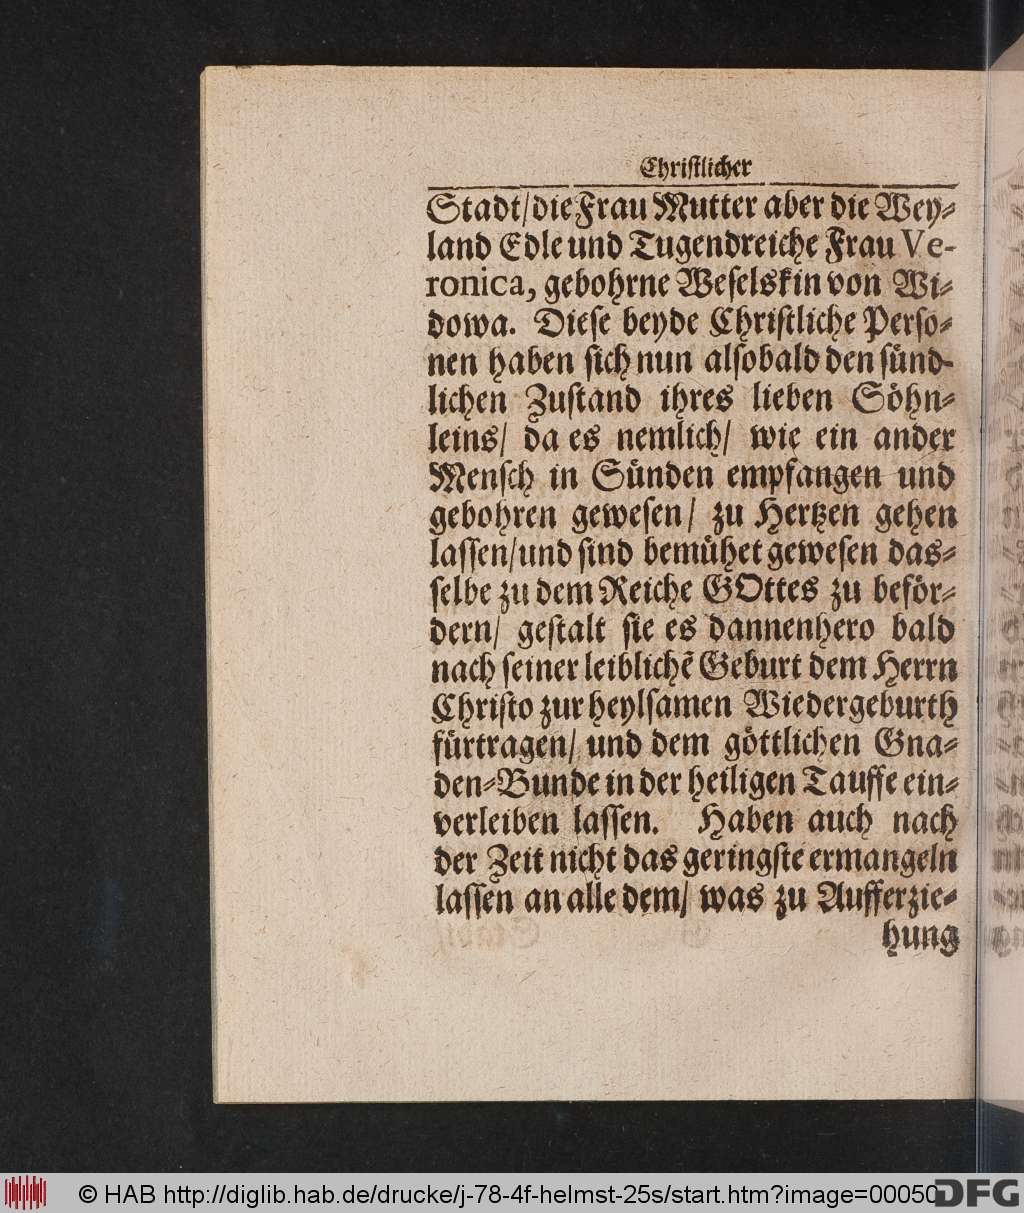 Christlicher
Stadt/die Frau Mutter aber die Wey⸗
land Edle und Tugendreiche Frau Ve-
ronica, gebohrne Weselskin von Wi⸗
dowa. Diese beyde Christliche Perso⸗
nen haben sich nun alsobald den sünd⸗
lichen Zustand ihres lieben Söhn⸗
leins/ da es nemlich/ wie ein ander
Mensch in Sünden empfangen und
gebohren gewesen/ zu Hertzen gehen
lassen/und sind bemühet gewesen das⸗
selbe zu dem Reiche GOttes zu beför⸗
dern/ gestalt sie es dannenhero bald
nach seiner leiblichẽ Geburt dem Herrn
Christo zur heylsamen Wiedergeburth
fürtragen/ und dem göttlichen Gna⸗
den⸗Bunde in der heiligen Tauffe ein⸗
verleiben lassen. Haben auch nach
der Zeit nicht das geringste ermangeln
lassen an alle dem/ was zu Aufferzie⸗
hung
© HAB http://diglib.hab.de/drucke/j-78-4f-helmst-25s/start.htm?image=00050
DFG